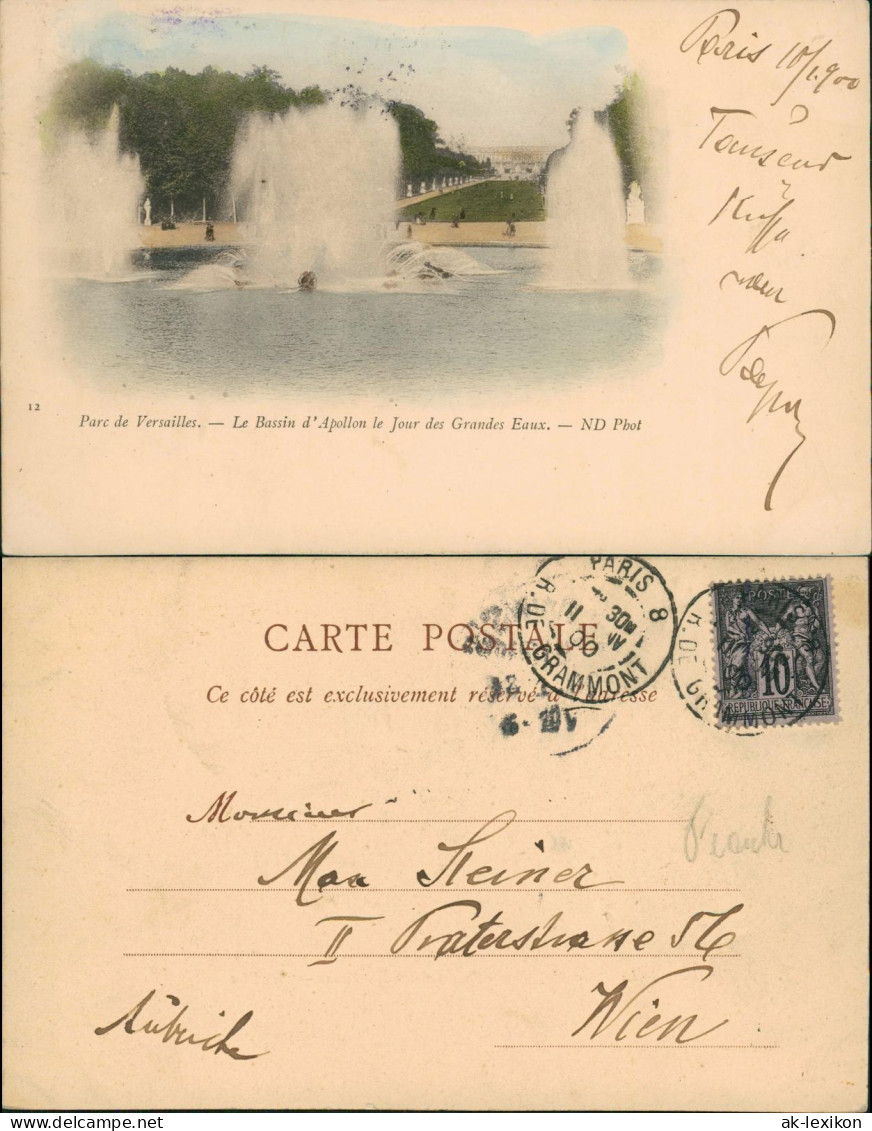 Paris 10/1.900
Tausend
Küsse
von
12
Parc de Versailles. — Le Bassin d'Apollon le Jour des Grandes Eaux. — ND Phot
PARIS 8
R. DE GRAMMONT
11
30
00
CARTE POSTALE
Ce côté est exclusivement réservé à l'adresse
12
POSTE
10
REPUBLIQUE FRANÇAISE
R. DE GRAMMONT
Monsieur
Max Steiner
II Praterstrasse 56
Wien
Autriche
ak-lexikon.com